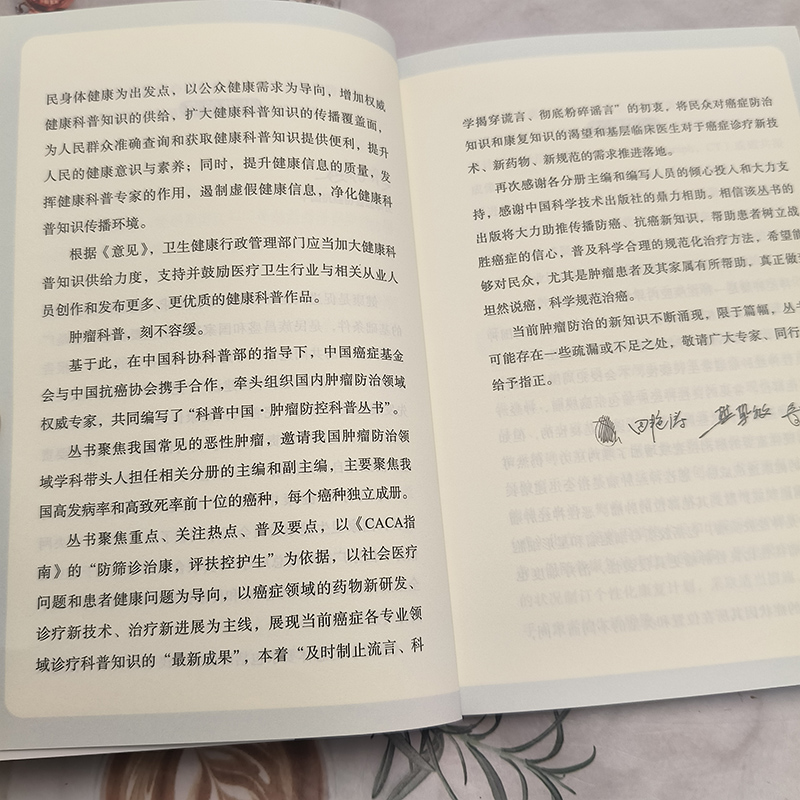 民身体健康为出发点，以公众健康需求为导向，增加权威
健康科普知识的供给，扩大健康科普知识的传播覆盖面，
为人民群众准确查询和获取健康科普知识提供便利，提升
人民的健康意识与素养；同时，提升健康信息的质量，发
挥健康科普专家的作用，遏制虚假健康信息，净化健康科
普知识传播环境。
根据《意见》，卫生健康行政管理部门应当加大健康科
普知识供给力度，支持并鼓励医疗卫生行业与相关从业人
员创作和发布更多、更优质的健康科普作品。
肿瘤科普，刻不容缓。
基于此，在中国科协科普部的指导下，中国癌症基金
会与中国抗癌协会携手合作，牵头组织国内肿瘤防治领域
权威专家，共同编写了“科普中国·肿瘤防控科普丛书”。
丛书聚焦我国常见的恶性肿瘤，邀请我国肿瘤防治领
域学科带头人担任相关分册的主编和副主编，主要聚焦我
国高发病率和高致死率前十位的癌种，每个癌种独立成册。
丛书聚焦重点、关注热点、普及要点，以《CACA指
南》的“防筛诊治康，评扶控护生”为依据，以社会医疗
问题和患者健康问题为导向，以癌症领域的药物新研发、
诊疗新技术、治疗新进展为主线，展现当前癌症各专业领
域诊疗科普知识的“最新成果”，本着“及时制止流言、科
学揭穿谎言、彻底粉碎谣言”的初衷，将民众对癌症防治
知识和康复知识的渴望和基层临床医生对于癌症诊疗新技
术、新药物、新规范的需求推进落地。
再次感谢各分册主编和编写人员的倾心投入和大力支
持，感谢中国科学技术出版社的鼎力相助。相信该丛书的
出版将大力助推传播防癌、抗癌新知识，帮助患者树立战
胜癌症的信心，普及科学合理的规范化治疗方法，希望能
够对民众，尤其是肿瘤患者及其家属有所帮助，真正做
坦然说癌，科学规范治癌。
当前肿瘤防治的新知识不断涌现，限于篇幅，丛书
可能存在一些疏漏或不足之处，敬请广大专家、同行
给予指正。